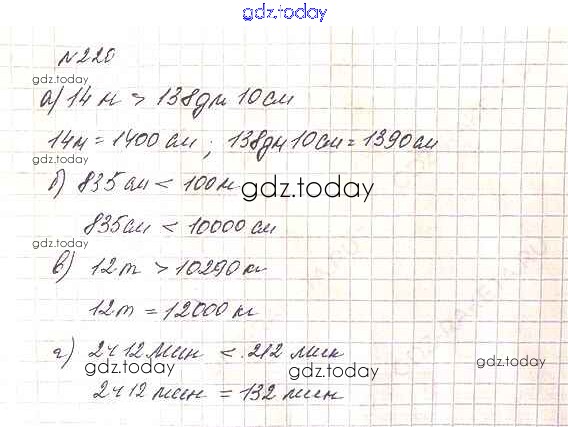 gdz.today
№220
gdz.today
а) 14 м > 138дм 10 см
14м = 1400 см ; 138дм 10см = 1390см
gdz.today
б) 835см < 100м
gdz.today
835см < 10000 см
gdz.today
в) 12т > 10290 кг
12т = 12000 кг
г) 2ч 12 мин < 212 мин
gdz.today
gdz.today
gdz.today
2ч 12 мин = 132 мин